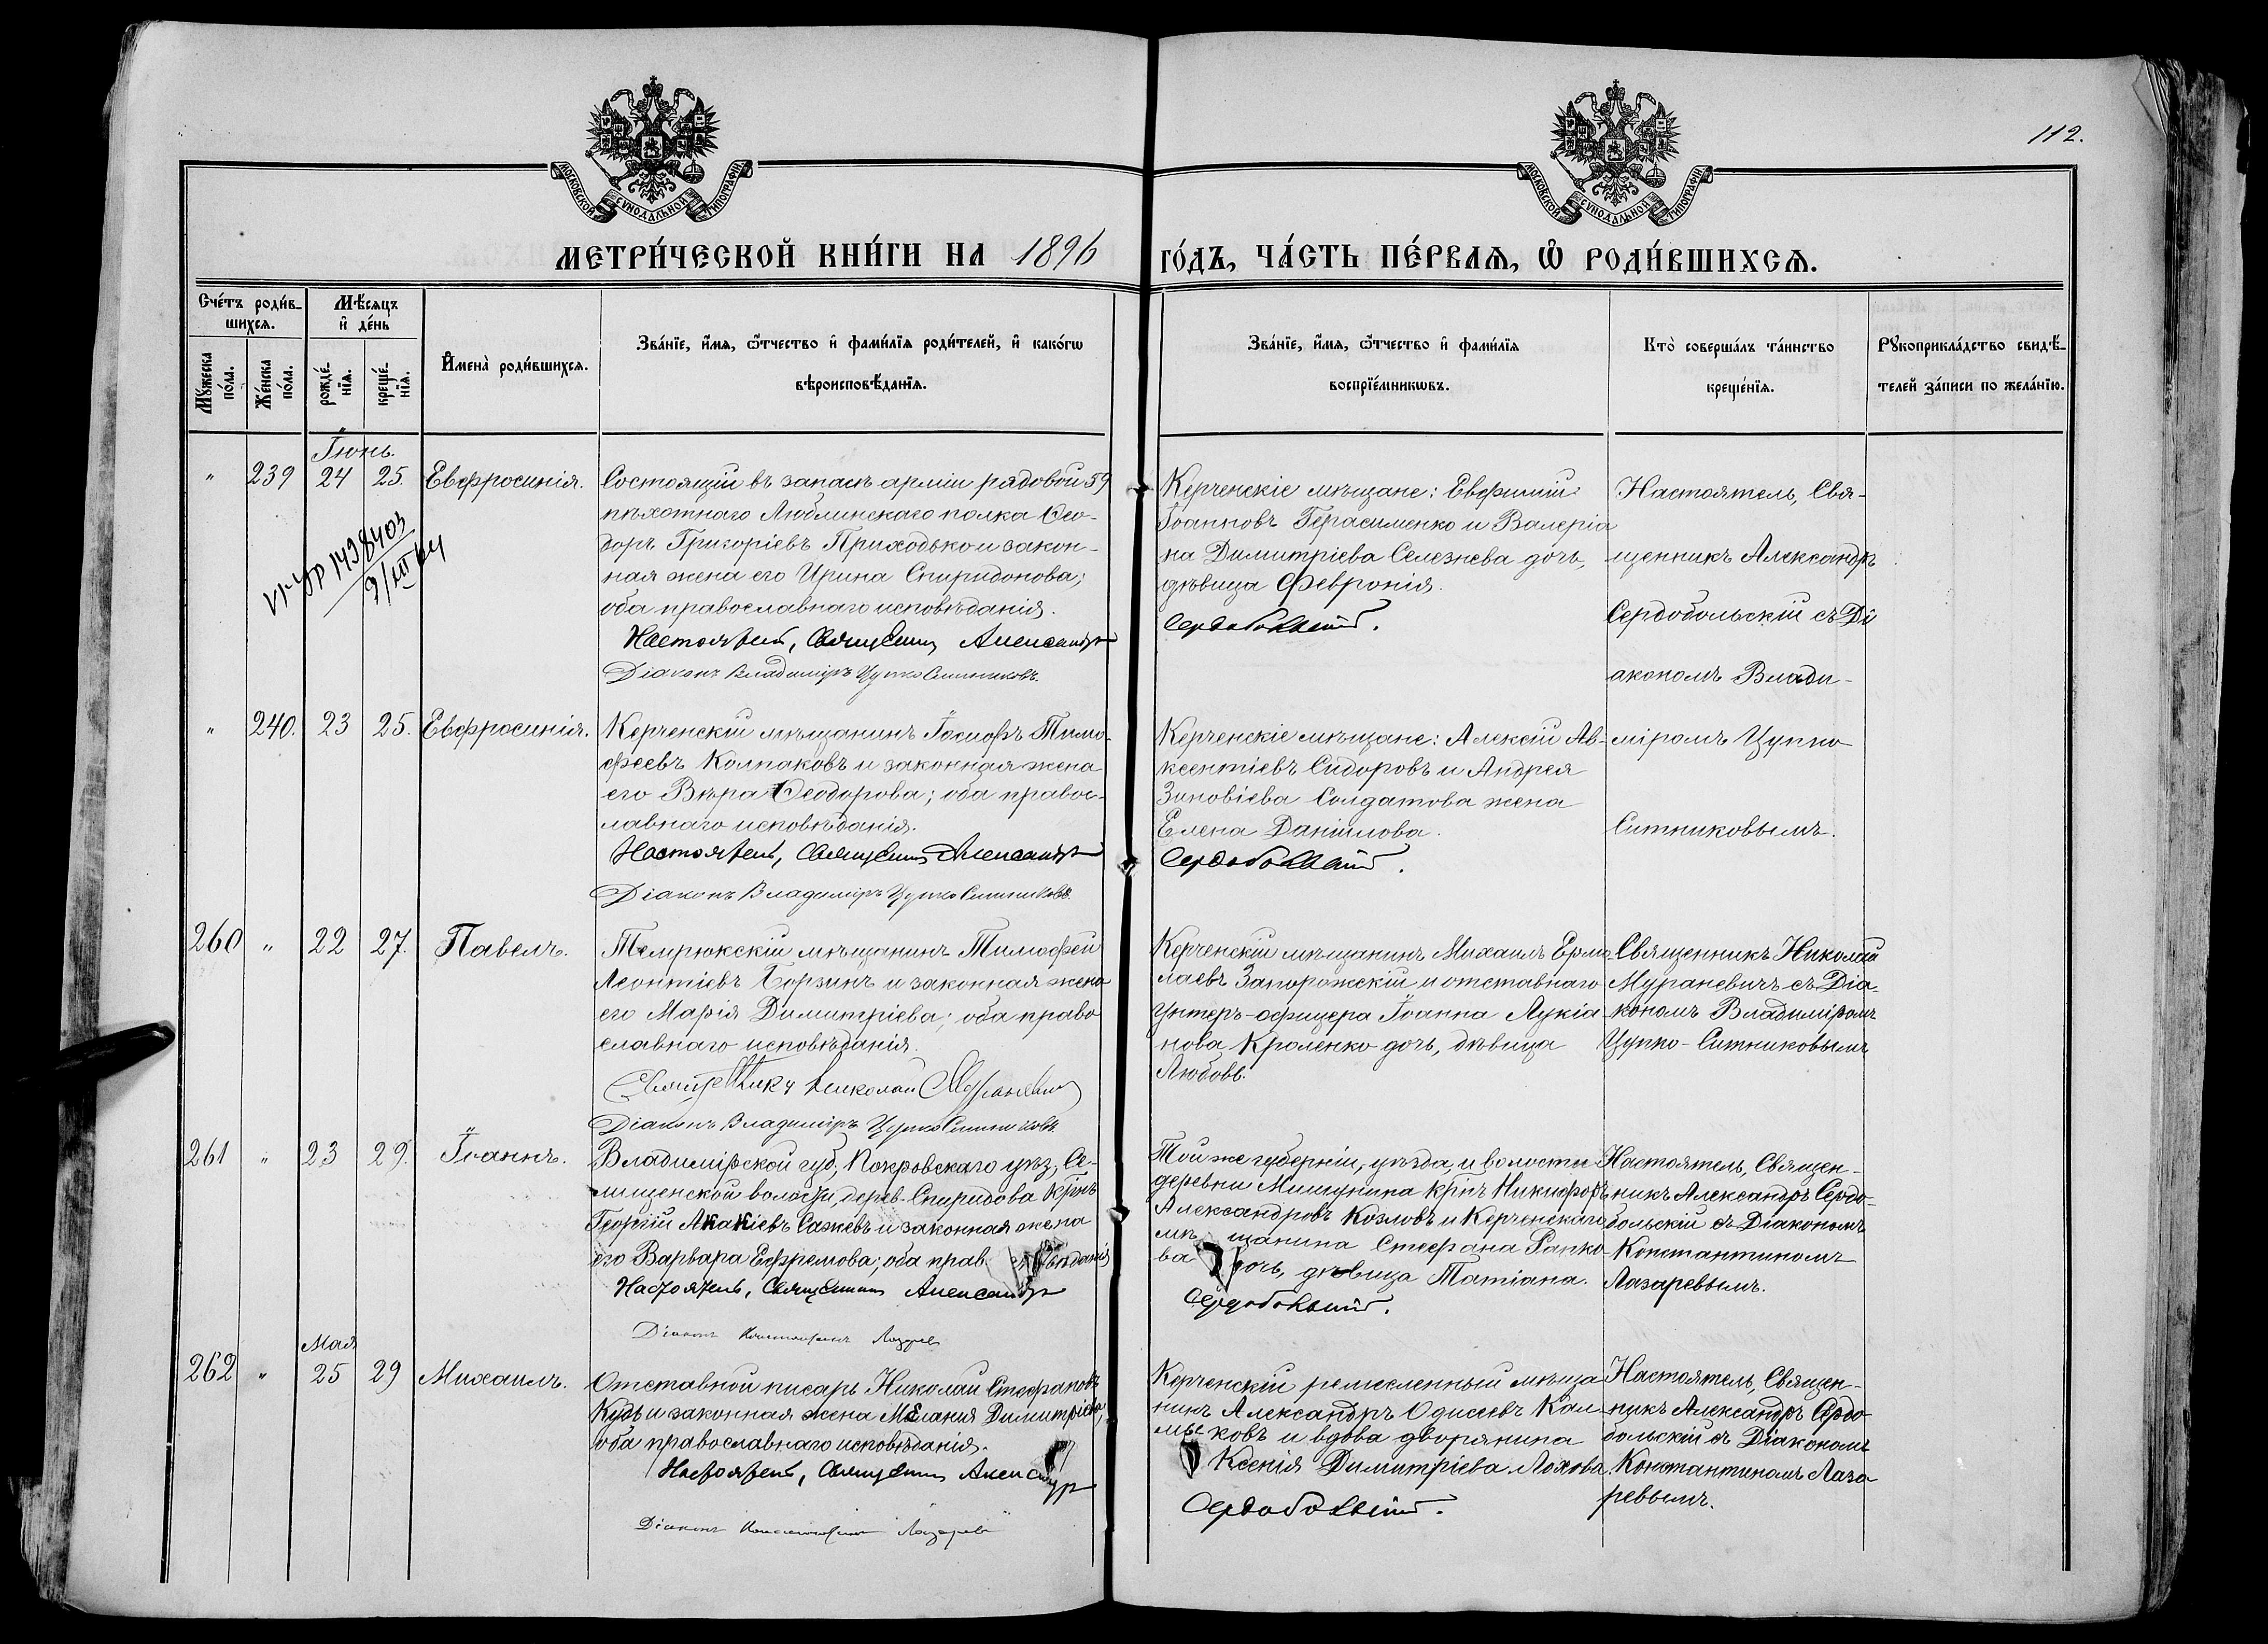 112.
МОСКОВСКОЙ СУНОДАЛЬНОЙ ТИПОГРАФІИ
МОСКОВСКОЙ СУНОДАЛЬНОЙ ТИПОГРАФІИ
МЕТРИ́ЧЕСКОЙ КНИ́ГИ НА 1896 ГО́ДЪ, ЧА́СТЬ ПЕ́РВАѦ, Ѡ҆ РОДИ́ВШИХСѦ.
Сче́тъ роди́в-
шихсѧ.
Мꙋ́жеска по́ла.
Же́нска по́ла.
Мѣ́сѧцъ
и҆ де́нь
рожде́-
нїѧ.
креще́-
нїѧ.
И҆мена̀ роди́вшихсѧ.
Зва́нїе, и҆́мѧ, ѻ҆́тчество и҆ фами́лїѧ роди́телей, и҆ како́гѡ
вѣроисповѣ́данїѧ.
Зва́нїе, и҆́мѧ, ѻ҆́тчество и҆ фами́лїѧ
воспрїе́мникѡвъ.
Кто̀ соверша́лъ та́инство
креще́нїѧ.
Рꙋкоприкла́дство свидѣ́-
телей за́писи по жела́нїю.
Іюнь.
" 239 24 25. Евфросинія.
Состоящій въ запасѣ арміи рядовой 59
пѣхотнаго Люблинскаго полка Ѳео-
доръ Григоріевъ Приходько и закон-
ная жена его Ирина Спиридонова;
оба православнаго исповѣданія.
Настоятель, Священникъ Александръ
Діаконъ Владиміръ Цупко Ситниковъ.
1438403
9/III
Керченскіе мѣщане: Евфимій
Іоанновъ Герасименко и Валеріа
на Димитріева Селезнева дочь,
дѣвица Февронія.
Сердобольскій.
Настоятель, Свя-
щенникъ Александръ
Сердобольскій съ Ді
акономъ Влади-
" 240. 23 25. Евфросинія.
Керченскій мѣщанинъ Іосифъ Тимо-
феевъ Колпаковъ и законная жена
его Вѣра Ѳеодорова; оба правос-
лавнаго исповѣданія.
Настоятель, Священникъ Александръ
Діаконъ Владиміръ Цупко Ситниковъ.
Керченскіе мѣщане: Алексій Ав-
ксентіевъ Сидоровъ и Андрея
Зиновіева Солдатова жена
Елена Даніилова.
Сердобольскій.
міромъ Цупко
Ситниковымъ.
260 " 22 27. Павелъ.
Темрюкскій мѣщанинъ Тимофей
Леонтіевъ Борзинъ и законная жена
его Марія Димитріева; оба право
славнаго исповѣданія.
Священникъ Николай Мураневичъ
Діаконъ Владиміръ Цупко Ситниковъ.
Керченскій мѣщанинъ Михаилъ Ермо
лаевъ Запорожскій и отставнаго
унтеръ-офицера Іоанна Лукіа
нова Кроленко дочь, дѣвица
Любовь.
Священникъ Николай
Мураневичъ съ Діа-
кономъ Владиміромъ
Цупко-Ситниковымъ
261 " 23 29. Іоаннъ.
Владимірской губ., Покровскаго уѣз., Се-
лищенской волости, дерев. Спиридова кр҃нъ
Георгій Акакіевъ Сажевъ и законная жена
его Варвара Ефремова; оба прав.
Настоятель, Священникъ Александръ
Діаконъ Константинъ Лазарев
Той же губерніи, уѣзда, и волости
деревни Мишунина кр҃нъ Никифоръ
Александровъ Козловъ и Керченскаго
мѣщанина Стефана Рапко-
ва дочь, дѣвица Татіана.
Сердобольскій.
Настоятель, Священ-
никъ Александръ Сердо-
больскій съ Діакономъ
Константиномъ
Лазаревымъ.
Мая
262 " 25 29 Михаилъ.
Отставной писарь Николай Стефановъ
Кузь и законная жена Меланія Димитріева,
оба православнаго исповѣданія.
Настоятель, Священникъ Александръ
Діаконъ Константинъ Лазаревъ
Керченскій ремесленный мѣща
нинъ Александръ Одисеевъ Кал-
мыковъ и вдова дворянина
Ксенія Димитріева Лохова.
Сердобольскій.
Настоятель, Священ-
никъ Александръ Сердо-
больскій съ Діакономъ
Константиномъ Лаза
ревымъ.